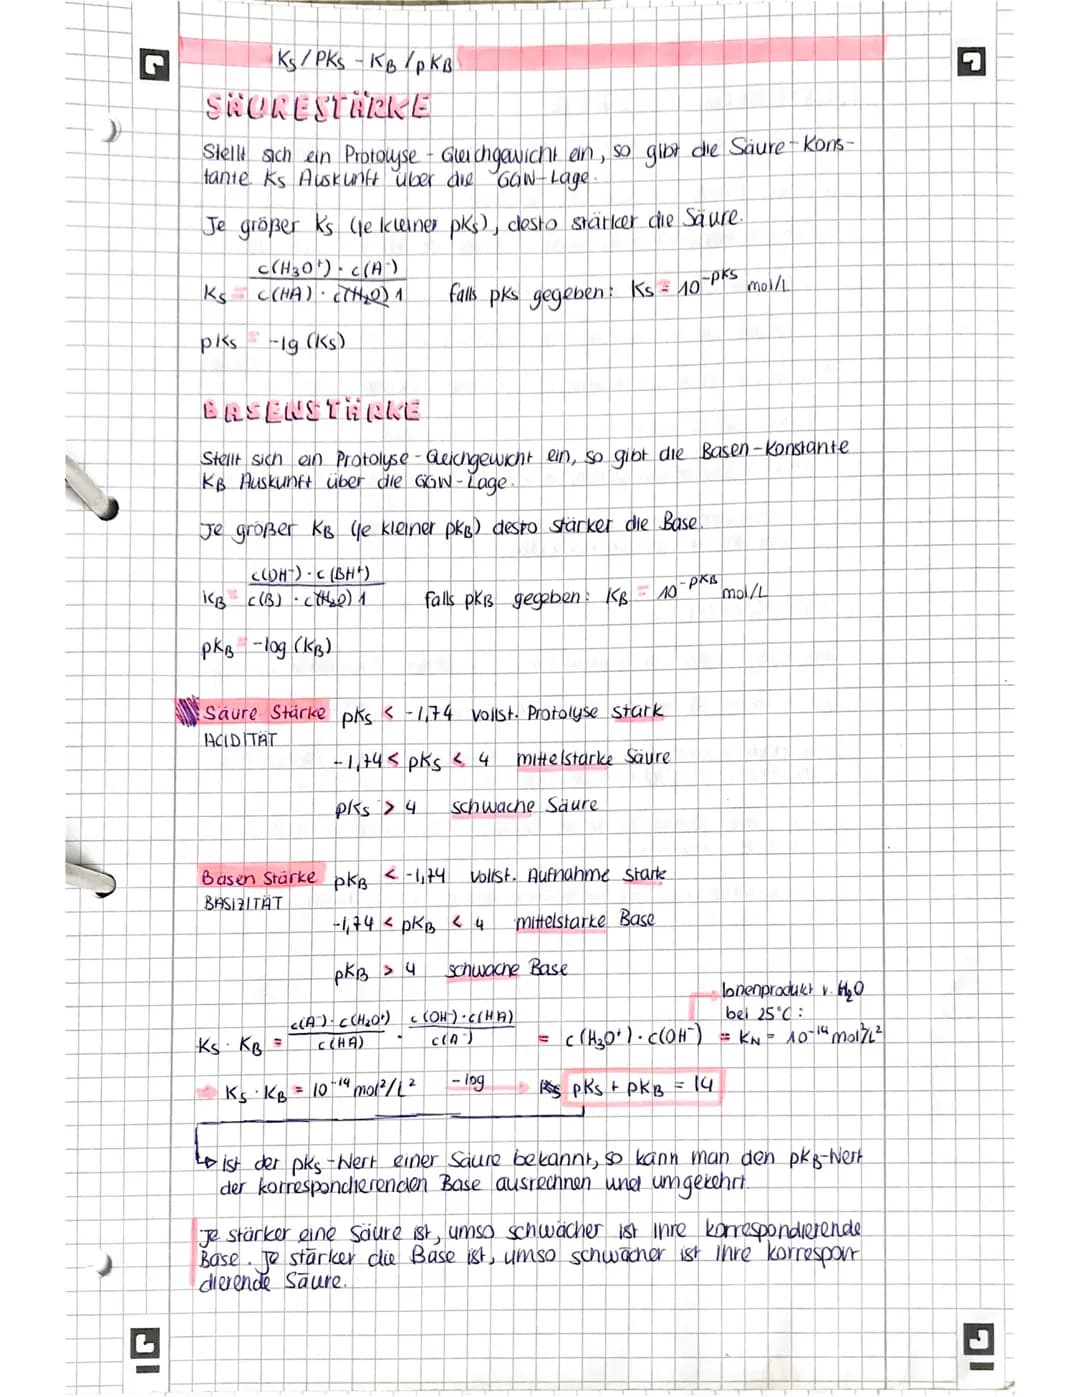 Ks/PKs - KB/pKB
SÄURESTÄRKE
Stellt sich ein Protolyse-Gleichgewicht ein, so gibt die Säure-Kons-
tante Ks Auskunft über die GGW-Lage.
Je größer Ks (je kleiner pKs), desto stärker die Säure.
c(H3O+) · c(A-)
Ks = c(HA) · c(H2O) 1 falls pKs gegeben: Ks = 10^-pKs mol/L
pKs = -lg (Ks)
BASENSTÄRKE
Stellt sich ein Protolyse-Gleichgewicht ein, so gibt die Basen-Konstante
KB Auskunft über die GGW-Lage.
Je größer KB (je kleiner pKB) desto stärker die Base.
c(OH-) · c(BH+)
KB = c(B) · c(H2O) 1 falls pKB gegeben: KB = 10^-pKB mol/L
pKB = -log (KB)
Säure Stärke pKs < -1,74 vollst. Protolyse stark
ACIDITÄT
-1,74 < pKs < 4 mittelstarke Säure
pKs > 4 schwache Säure
Basen Stärke pKB < -1,74 vollst. Aufnahme stark
BASIZITÄT
-1,74 < pKB < 4 mittelstarke Base
pKB > 4 schwache Base
Ionenprodukt v. H2O
bei 25°C:
Ks · KB = c(A-) · c(H3O+) / c(HA) · c(OH-) · c(HA) / c(A-) = c(H3O+) · c(OH-) = KN = 10^-14 mol²/L²
Ks · KB = 10^-14 mol²/L² -log pKs + pKB = 14
ist der pKs-Wert einer Säure bekannt, so kann man den pKB-Wert
der korrespondierenden Base ausrechnen und umgekehrt.
Je stärker eine Säure ist, umso schwächer ist ihre korrespondierende
Base. Je stärker die Base ist, umso schwächer ist ihre korrespon-
dierende Säure.